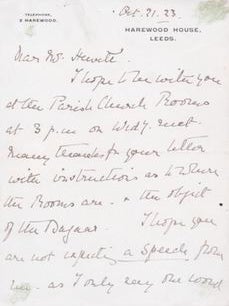 TELEPHONE,
2 HAREWOOD.
Oct. 21. 23.
HAREWOOD HOUSE,
LEEDS.
Dear Mr. Hewitt
I hope to be with you
at the Parish Church Rooms
at 3 p.m on Wedy. next
Many thanks for your letter
with instructions as to where
the Rooms are. & the object
of the Bazaar. I hope you
are not expecting a Speech from
me. as I only say one word